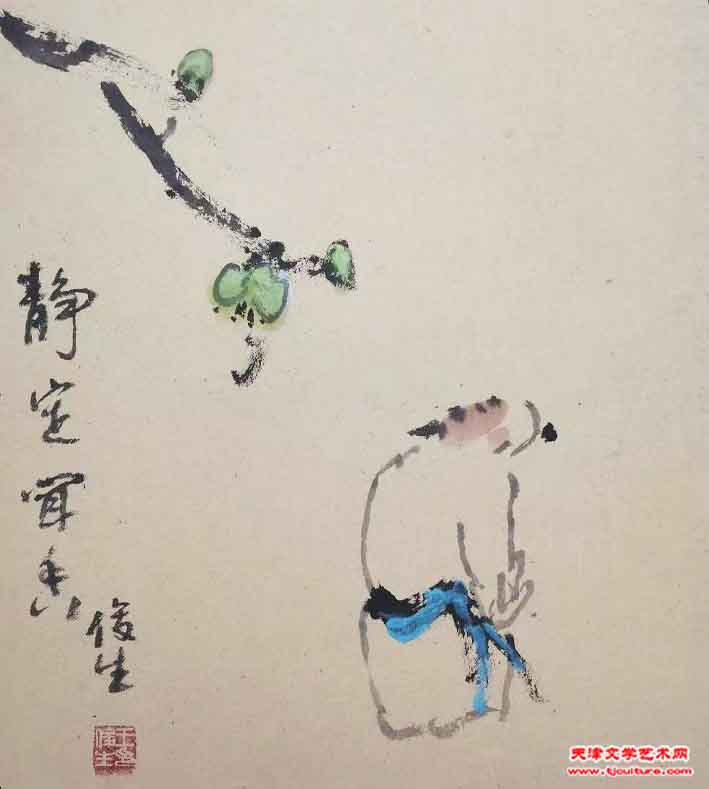 静定闻香
俊生
天津文学艺术网
www.tjculture.com